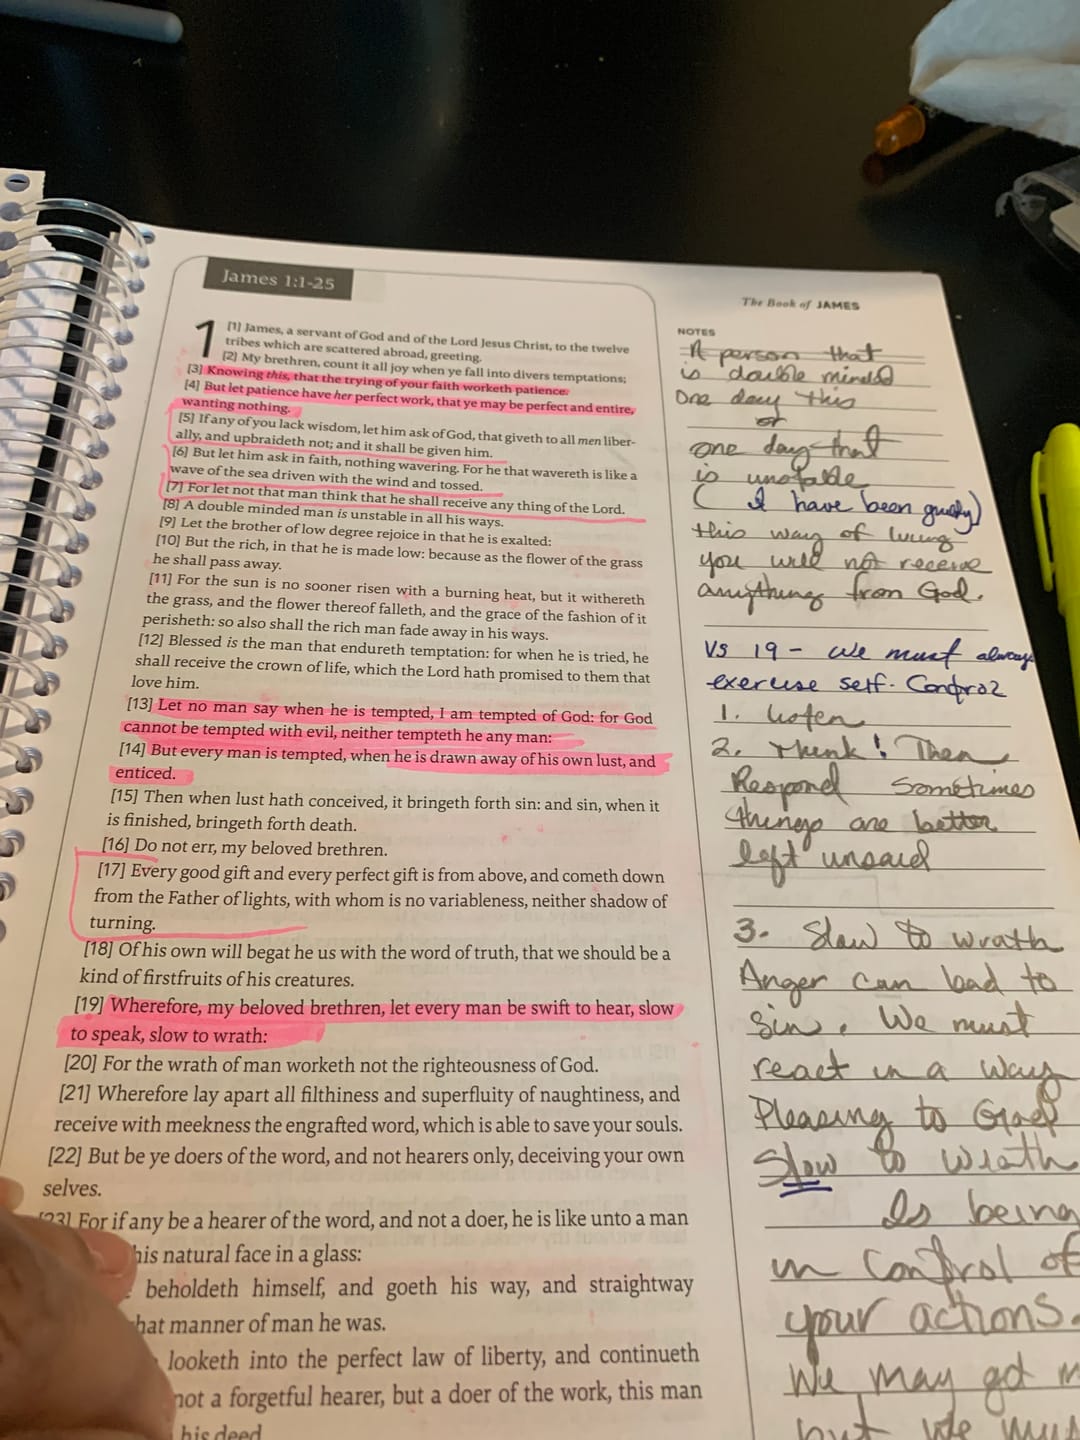 James 1:1-25
1 [1] James, a servant of God and of the Lord Jesus Christ, to the twelve
tribes which are scattered abroad, greeting.
[2] My brethren, count it all joy when ye fall into divers temptations;
[3] Knowing this, that the trying of your faith worketh patience.
[4] But let patience have her perfect work, that ye may be perfect and entire,
wanting nothing.
[5] If any of you lack wisdom, let him ask of God, that giveth to all men liber-
ally, and upbraideth not; and it shall be given him.
[6] But let him ask in faith, nothing wavering. For he that wavereth is like a
wave of the sea driven with the wind and tossed.
[7] For let not that man think that he shall receive any thing of the Lord.
[8] A double minded man is unstable in all his ways.
[9] Let the brother of low degree rejoice in that he is exalted:
[10] But the rich, in that he is made low: because as the flower of the grass
he shall pass away.
[11] For the sun is no sooner risen with a burning heat, but it withereth
the grass, and the flower thereof falleth, and the grace of the fashion of it
perisheth: so also shall the rich man fade away in his ways.
[12] Blessed is the man that endureth temptation: for when he is tried, he
shall receive the crown of life, which the Lord hath promised to them that
love him.
[13] Let no man say when he is tempted, I am tempted of God: for God
cannot be tempted with evil, neither tempteth he any man:
[14] But every man is tempted, when he is drawn away of his own lust, and
enticed.
[15] Then when lust hath conceived, it bringeth forth sin: and sin, when it
is finished, bringeth forth death.
[16] Do not err, my beloved brethren.
[17] Every good gift and every perfect gift is from above, and cometh down
from the Father of lights, with whom is no variableness, neither shadow of
turning.
[18] Of his own will begat he us with the word of truth, that we should be a
kind of firstfruits of his creatures.
[19] Wherefore, my beloved brethren, let every man be swift to hear, slow
to speak, slow to wrath:
[20] For the wrath of man worketh not the righteousness of God.
[21] Wherefore lay apart all filthiness and superfluity of naughtiness, and
receive with meekness the engrafted word, which is able to save your souls.
[22] But be ye doers of the word, and not hearers only, deceiving your own
selves.
[23] For if any be a hearer of the word, and not a doer, he is like unto a man
his natural face in a glass:
beholdeth himself, and goeth his way, and straightway
hat manner of man he was.
looketh into the perfect law of liberty, and continueth
not a forgetful hearer, but a doer of the work, this man
his deed
The Book of JAMES
NOTES
A person that
is double minded
One day this
or
one day that
is unstable
( I have been guilty)
this way of living
you will not receive
anything from God.
VS 19 - We must always
exercise self-Control
1. Listen
2. Think! Then
Respond Sometimes
things are better
left unsaid
3. Slow to wrath
Anger can lead to
sin. We must
react in a way
Pleasing to God
Slow to Wrath
Is being
in control of
your actions.
We may get m
but we mus